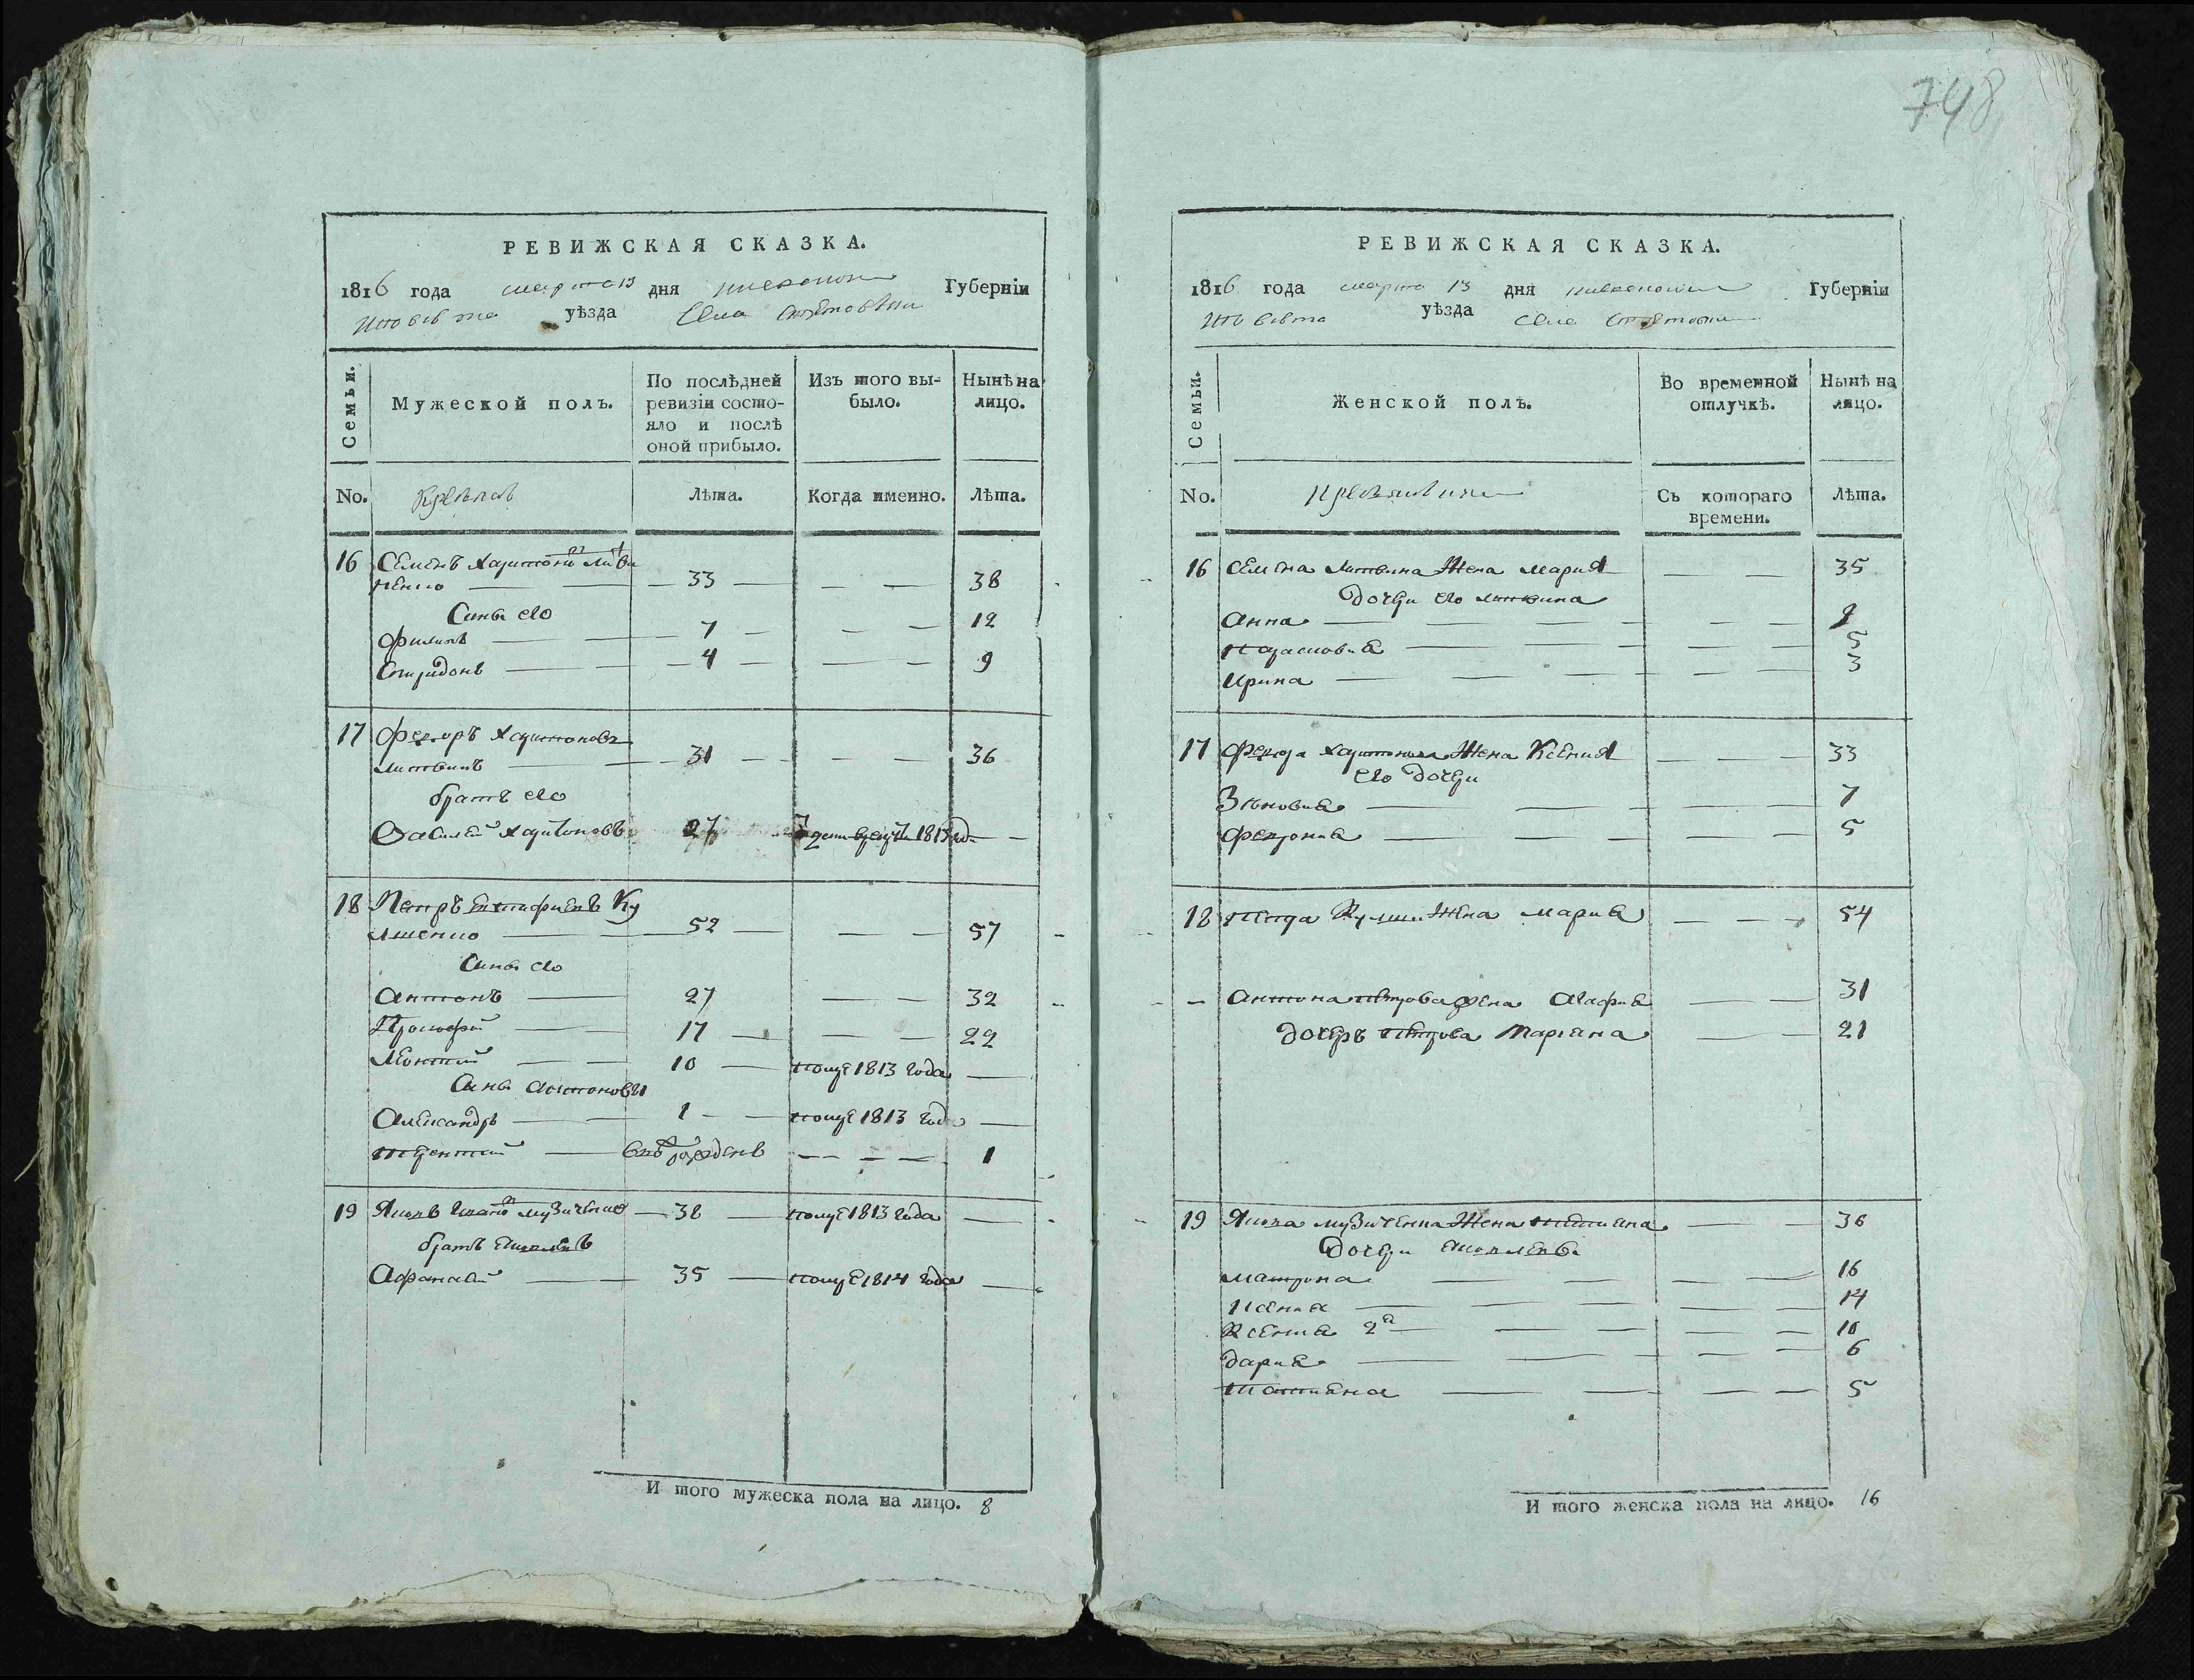 748
РЕВИЖСКАЯ СКАЗКА.
1816 года марта 13 дня Губерніи
уѣзда Села
Семьи.
Мужеской полъ.
По послѣдней ревизіи состо-
яло и послѣ
оной прибыло.
Изъ того вы-
было.
Нынѣ на
лицо.
No.
Лѣта.
Когда именно.
Лѣта.
16 Семенъ Харитоновъ Литви
ненко — 33 — — — 38
Сины его
Филипъ — 7 — — — 12
Спиридонъ — 4 — — — 9
17 Федоръ Харитоновъ
Литвинъ — 31 — — — 36
братъ его
Василей Харитоновъ 27 1813 год —
18 Петръ Евтифіевъ Ку
лшенко — 52 — — — 57
Сины его
Антонъ — 27 — — 32
Прокофій — 17 — — — 22
Леонтий — 10 — помре 1813 года —
Сины Антоновы
Александръ — 1 — помре 1813 года —
Терентий — вновь рожденъ — — — 1
19 Яковъ Музиченко — 38 — помре 1813 года —
братъ Яковлевъ
Афанасій — 35 — помре 1814 года —
И того мужеска пола на лицо. 8
РЕВИЖСКАЯ СКАЗКА.
1816 года марта 13 дня Губерніи
уѣзда Села
Семьи.
Женской полъ.
Во временной
отлучкѣ.
Нынѣ на
лицо.
No.
Съ котораго
времени.
Лѣта.
16 Семена Литвина Жена Мария — — 35
Дочери его Литвина
Анна — — — — — 9
Парасковия — — — — 5
Ирина — — — — — 3
17 Федора Харитонова Жена Ксения — — — 33
Его дочери
Зѣновия — — — — — 7
Феврония — — — — — 5
18 Петра Жена Мария — — — 54
Антона Петрова Жена Агафия — — 31
дочеръ Петрова Мариана — — 21
19 Якова Музиченка Жена Татияна — — 36
Дочери Яковлевы
Матрона — — — — 16
Ксения — — — — — 14
Ксения 2а — — — — — 10
Дария — — — — — 6
Татияна — — — — 5
И того женска пола на лицо. 16